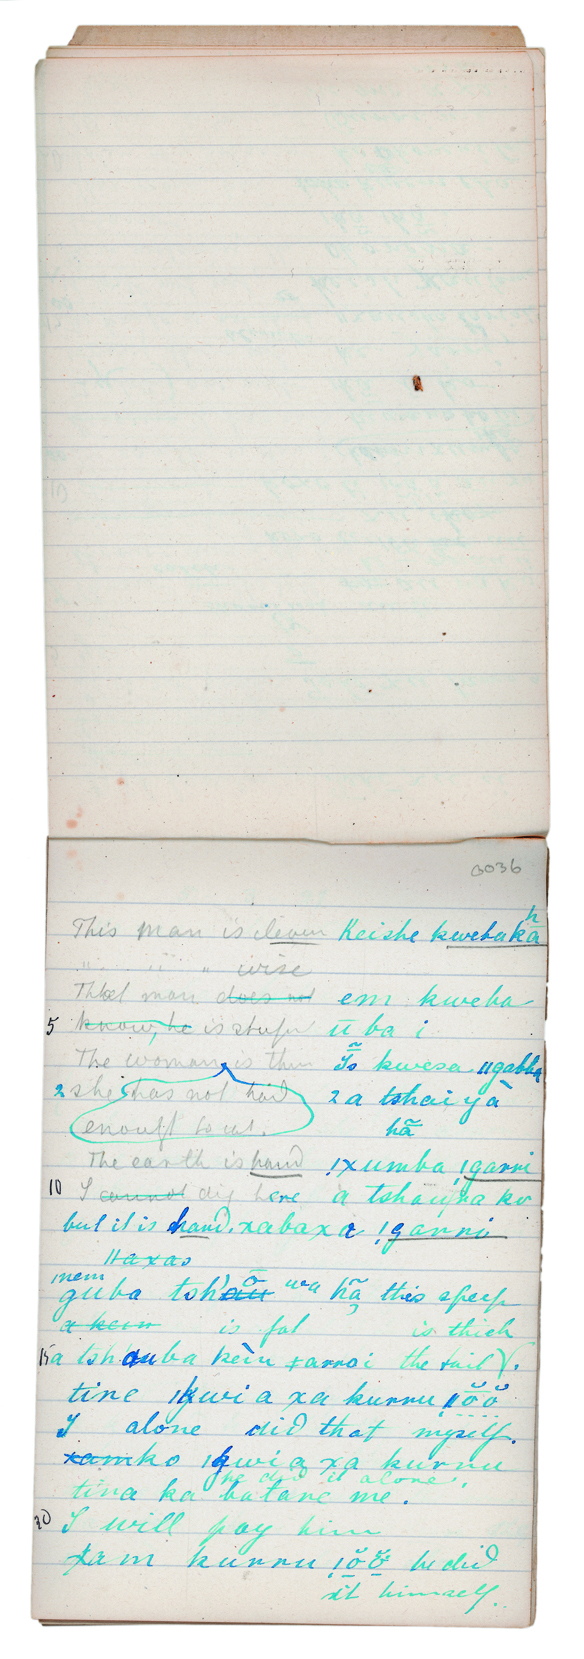 3036
This man is clever Keishe kwebakhā
" " " wise
That man does not em kweba
5 know, he is stupid ū ba i
The woman is thin Ĩs kwesa ǁgabba
2 she has not had 2 a tshai yà
enough to eat. hã
The earth is hard ǃxumba ǃgarri
10 I cannot dig here a tshauna ko
but it is hard. xabaxa ǃgarri
ǁaxas
mem
guba tshāū wa hã this sheep
a kein is fat is thick
15 a tshauba kèin ǂarroi the tail
tine ǀkwi a xa kurru ǁõõ
I alone did that myself.
xamko ǀkwi a xa kurru
he did it alone
tina ka batare me.
20 I will pay him
xam kurru ǃõõ he did
it himself.